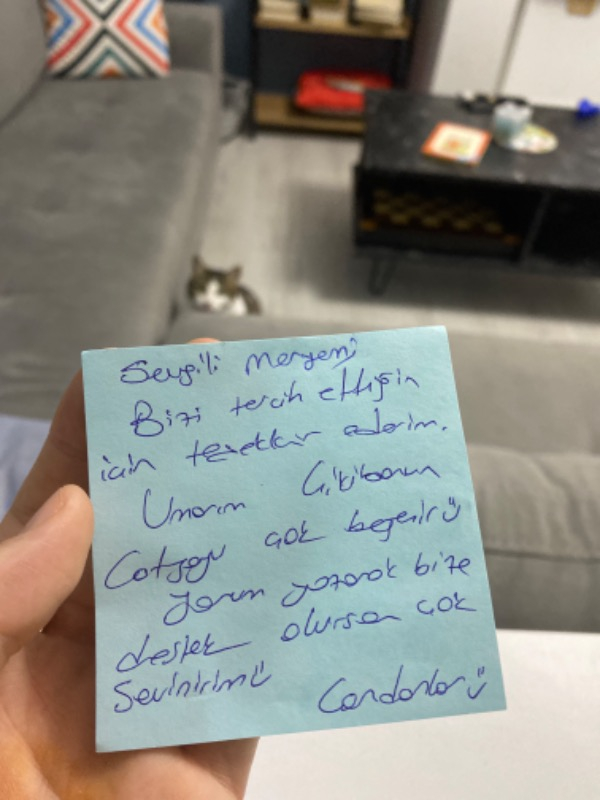 Sevgili Meryem;
Bizi tercih ettiğin
için teşekkür ederim.
Umarım
çok beğenir ü
Yorum yazarak bize
destek olursan çok
Sevinirim ü